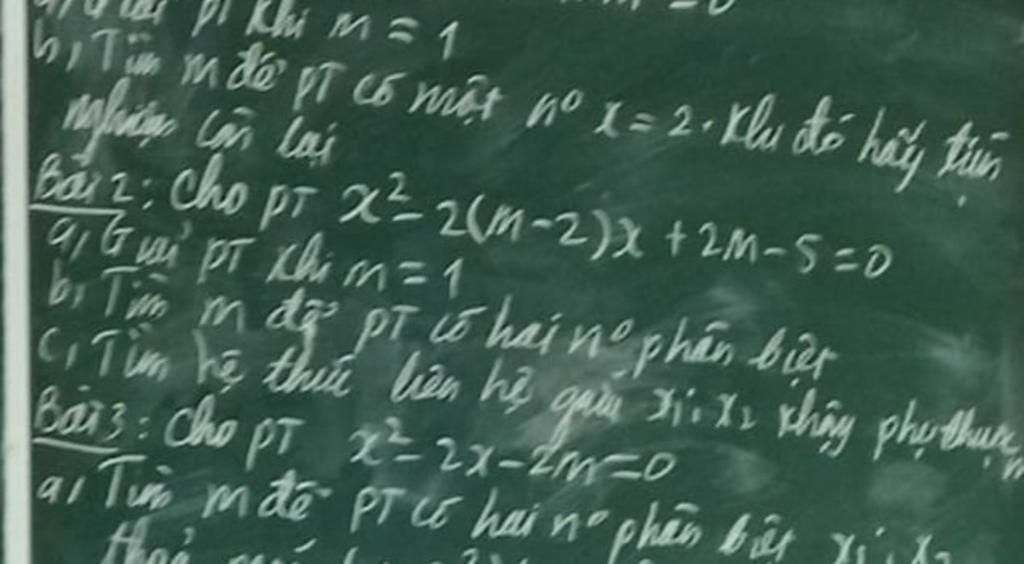 PT khi m = 1
b, Tìm m để PT có một nº x = 2. Khi đó hãy tìm
nghiệm còn lại
Bài 2: Cho PT x² - 2(m-2)x + 2m - 5 = 0
a, Giải PT khi m = 1
b, Tìm m để PT có hai nº phân biệt
c, Tìm hệ thức liên hệ giữa x₁; x₂ không phụ thuộc m
Bài 3: Cho PT x² - 2x - 2m = 0
a, Tìm m để PT có hai nº phân biệt x₁; x₂